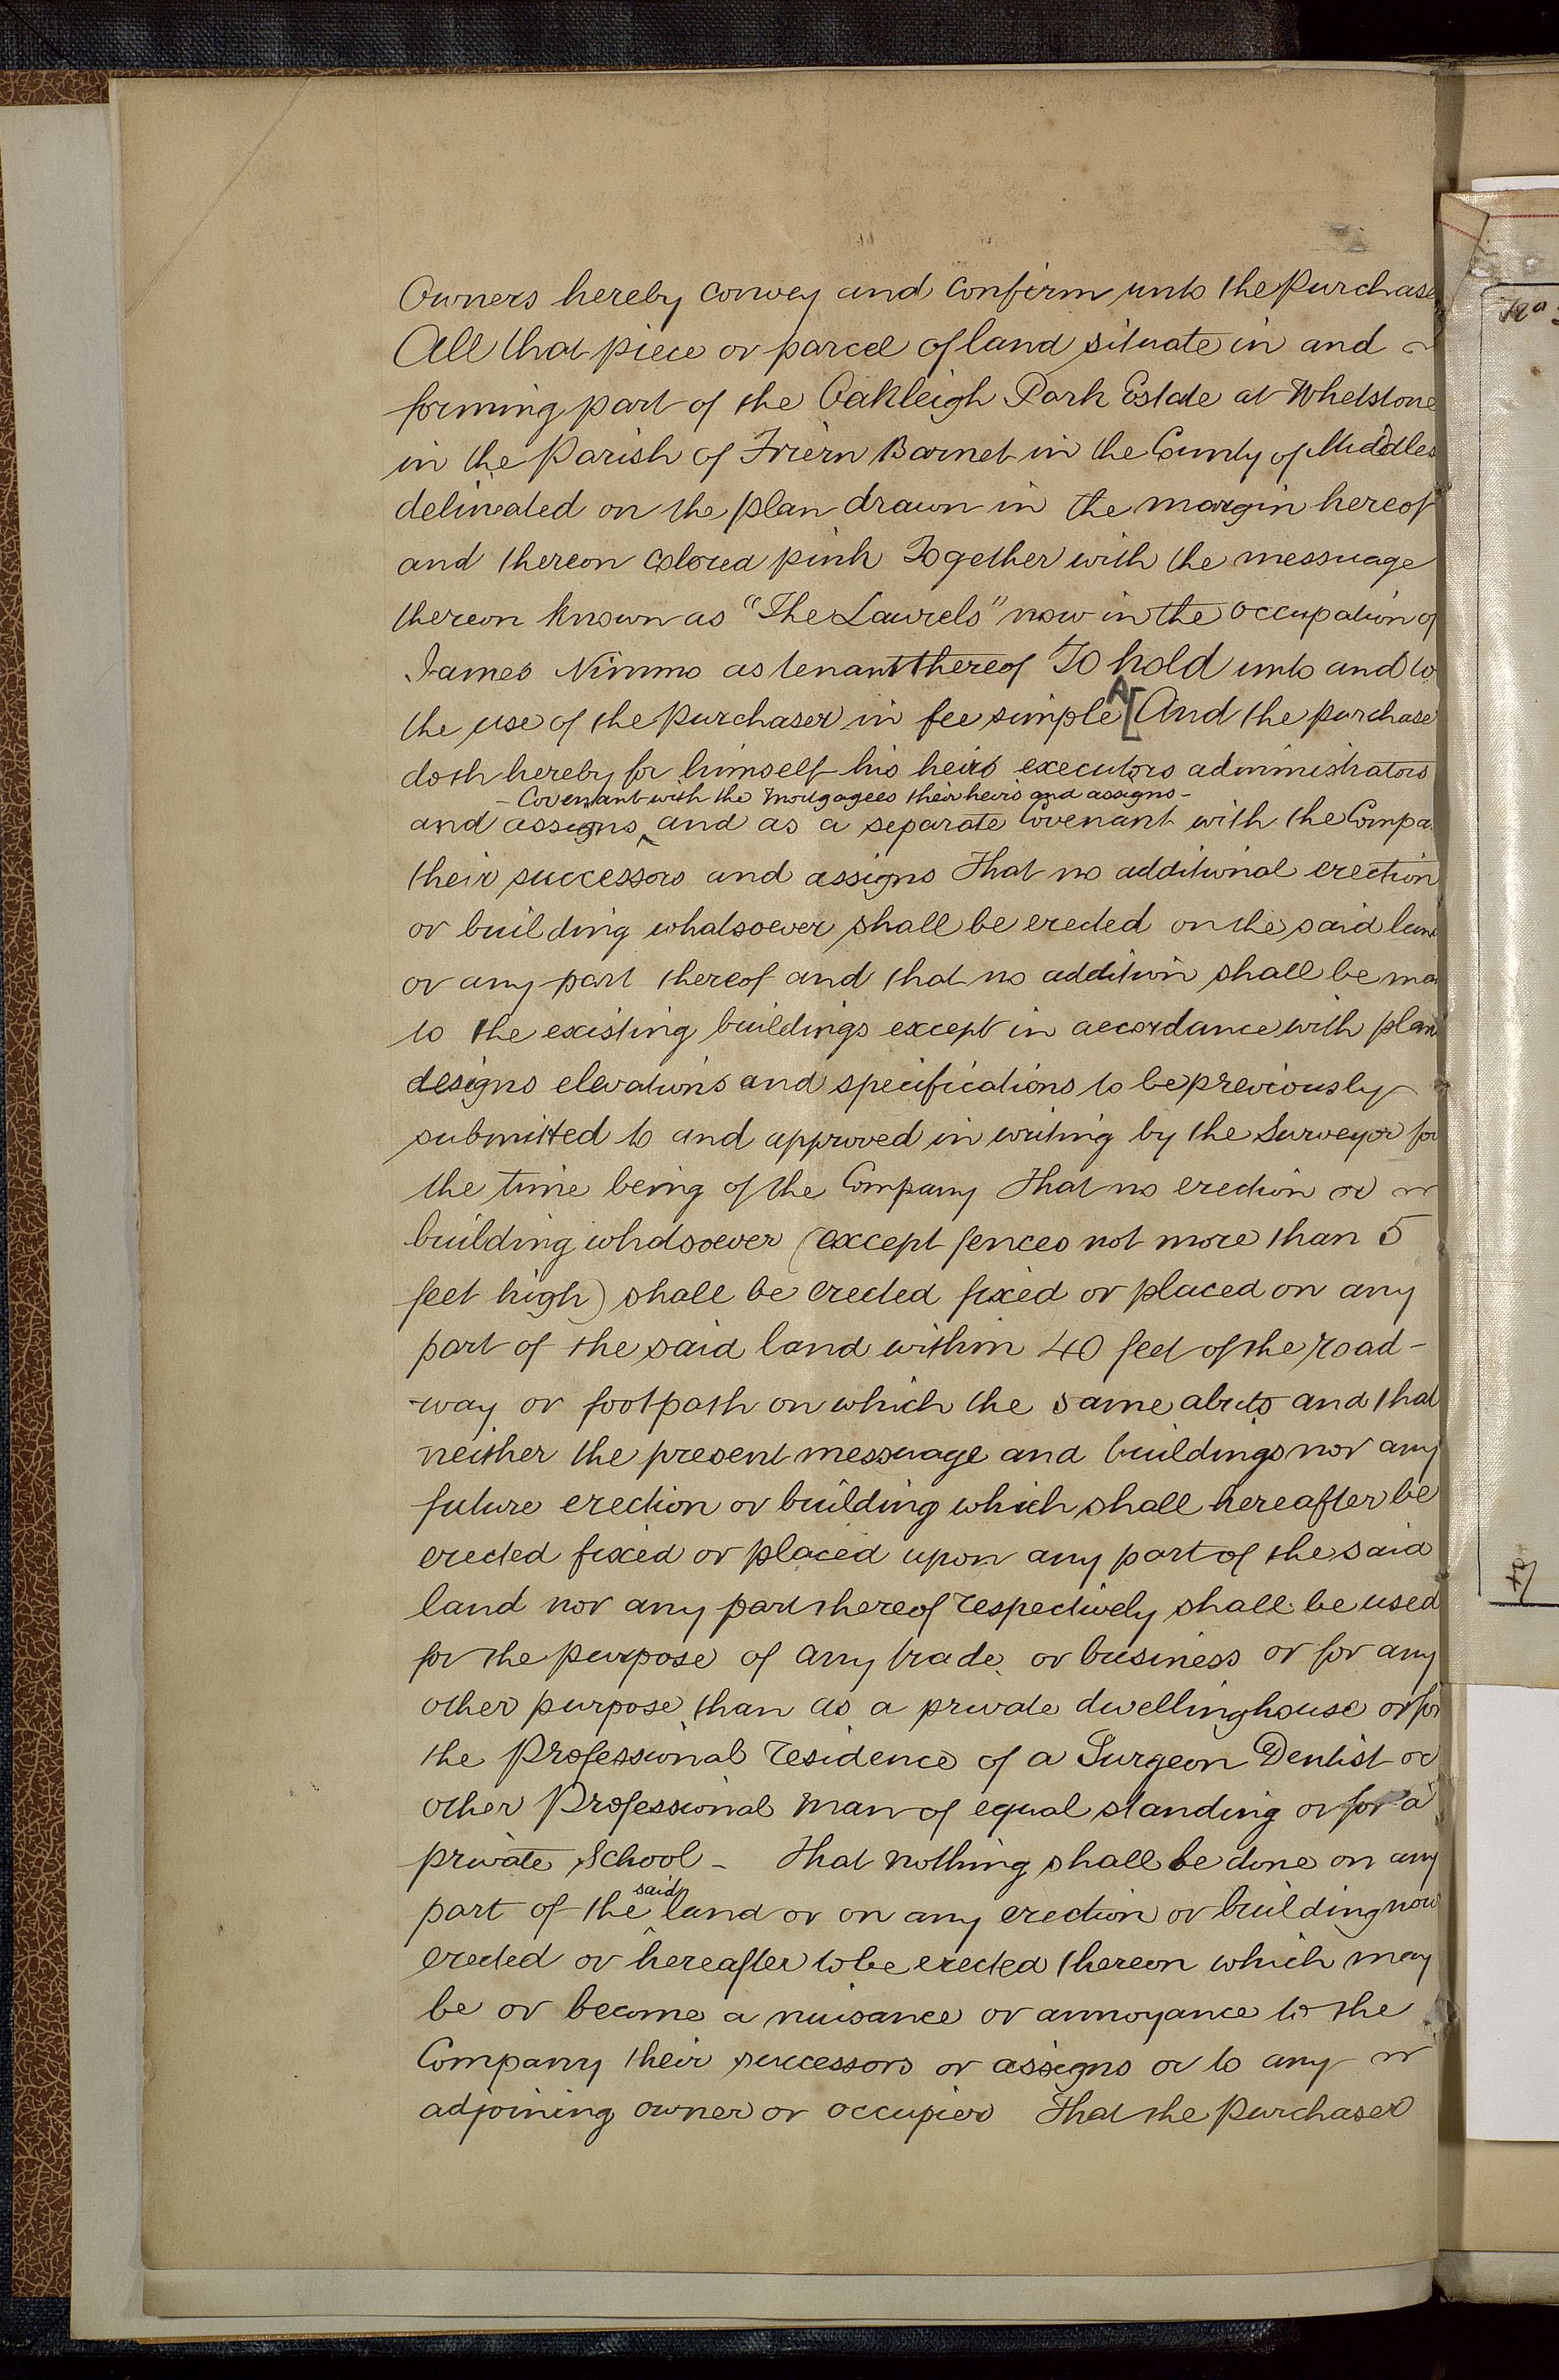 Owners hereby convey and confirm unto the Purchase
All that piece or parcel of land situate in and
forming part of the Oakleigh Park Estate at Whetstone
in the Parish of Friern Barnet in the County of Middles
delineated on the plan drawn in the margin hereof
and thereon colored pink Together with the messuage
thereon known as "The Laurels" now in the occupation of
James Nimmo as tenant thereof To hold unto and to
A
the use of the Purchaser in fee simple [And the purchase
doth hereby for himself his heirs executors administrators
- Covenant with the Mortgagees their heirs and assigns -
and assigns ^ and as a separate Covenant with the Compa
their successors and assigns That no additional erection
or building whatsoever shall be erected on the said lan
or any part thereof and that no addition shall be ma
to the existing buildings except in accordance with plan
designs elevations and specifications to be previously
submitted to and approved in writing by the Surveyor for
the time being of the Company That no erection or
building whatsoever (except fences not more than 5
feet high) shall be erected fixed or placed on any
part of the said land within 40 feet of the road-
-way or footpath on which the same abuts and that
neither the present messuage and buildings nor any
future erection or building which shall hereafter be
erected fixed or placed upon any part of the said
land nor any part thereof respectively shall be used
for the purpose of any trade or business or for any
other purpose than as a private dwellinghouse or for
the Professional residence of a Surgeon Dentist or
other Professional man of equal standing or for a
private School - That nothing shall be done on any
said
part of the ^ land or on any erection or building now
erected or hereafter to be erected thereon which may
be or become a nuisance or annoyance to the
Company their successors or assigns or to any
adjoining owner or occupier That the Purchaser